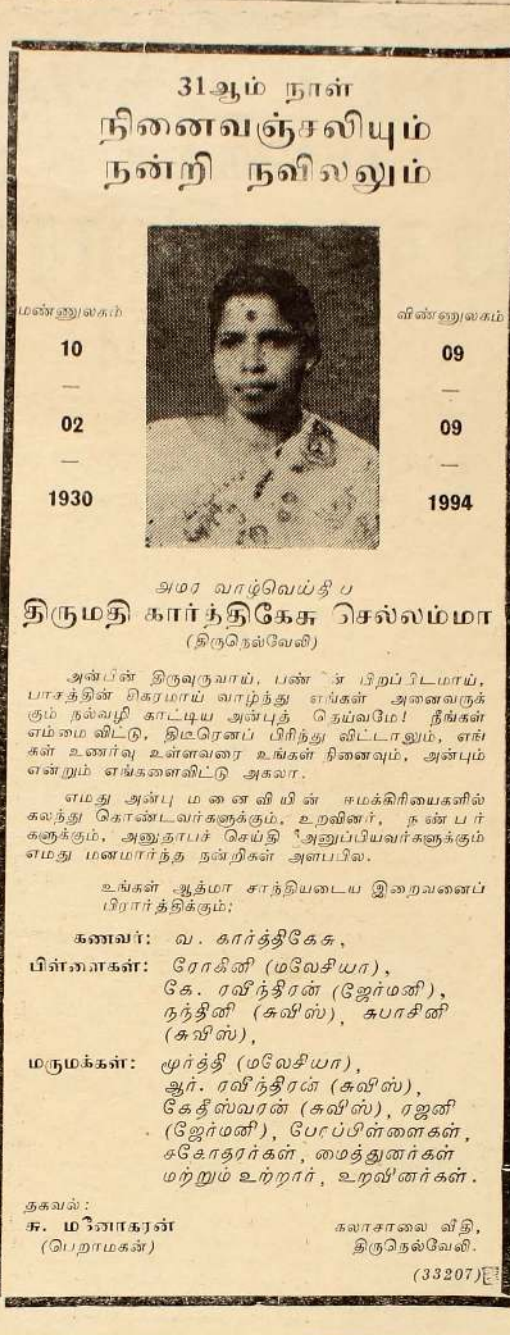 31ஆம் நாள்
நினைவஞ்சலியும்
நன்றி நவிலலும்
மண்ணுலகம்
10
—
02
—
1930
விண்ணுலகம்
09
—
09
—
1994
அமர வாழ்வெய்திய
திருமதி கார்த்திகேசு செல்லம்மா
(திருநெல்வேலி)
அன்பின் திருவுருவாய், பண்பின் பிறப்பிடமாய்,
பாசத்தின் சிகரமாய் வாழ்ந்து எங்கள் அனைவருக்
கும் நல்வழி காட்டிய அன்புத் தெய்வமே! நீங்கள்
எம்மை விட்டு, திடீரெனப் பிரிந்து விட்டாலும், எங்
கள் உணர்வு உள்ளவரை உங்கள் நினைவும், அன்பும்
என்றும் எங்களைவிட்டு அகலா.
எமது அன்பு மனைவியின் ஈமக்கிரியைகளில்
கலந்து கொண்டவர்களுக்கும், உறவினர், நண்பர்
களுக்கும், அனுதாபச் செய்தி அனுப்பியவர்களுக்கும்
எமது மனமார்ந்த நன்றிகள் அளப்பில.
உங்கள் ஆத்மா சாந்தியடைய இறைவனைப்
பிரார்த்திக்கும்;
கணவர்: வ. கார்த்திகேசு,
பிள்ளைகள்: ரோகினி (மலேசியா),
கே. ரவீந்திரன் (ஜேர்மனி),
நந்தினி (சுவிஸ்), சுபாசினி
(சுவிஸ்),
மருமக்கள்: மூர்த்தி (மலேசியா),
ஆர். ரவீந்திரன் (சுவிஸ்),
கேதீஸ்வரன் (சுவிஸ்), ரஜனி
(ஜேர்மனி), பேரப்பிள்ளைகள்,
சகோதரர்கள், மைத்துனர்கள்
மற்றும் உற்றார், உறவினர்கள்.
தகவல்:
சு. மனோகரன்
(பெறாமகன்)
கலாசாலை வீதி,
திருநெல்வேலி.
(33207)